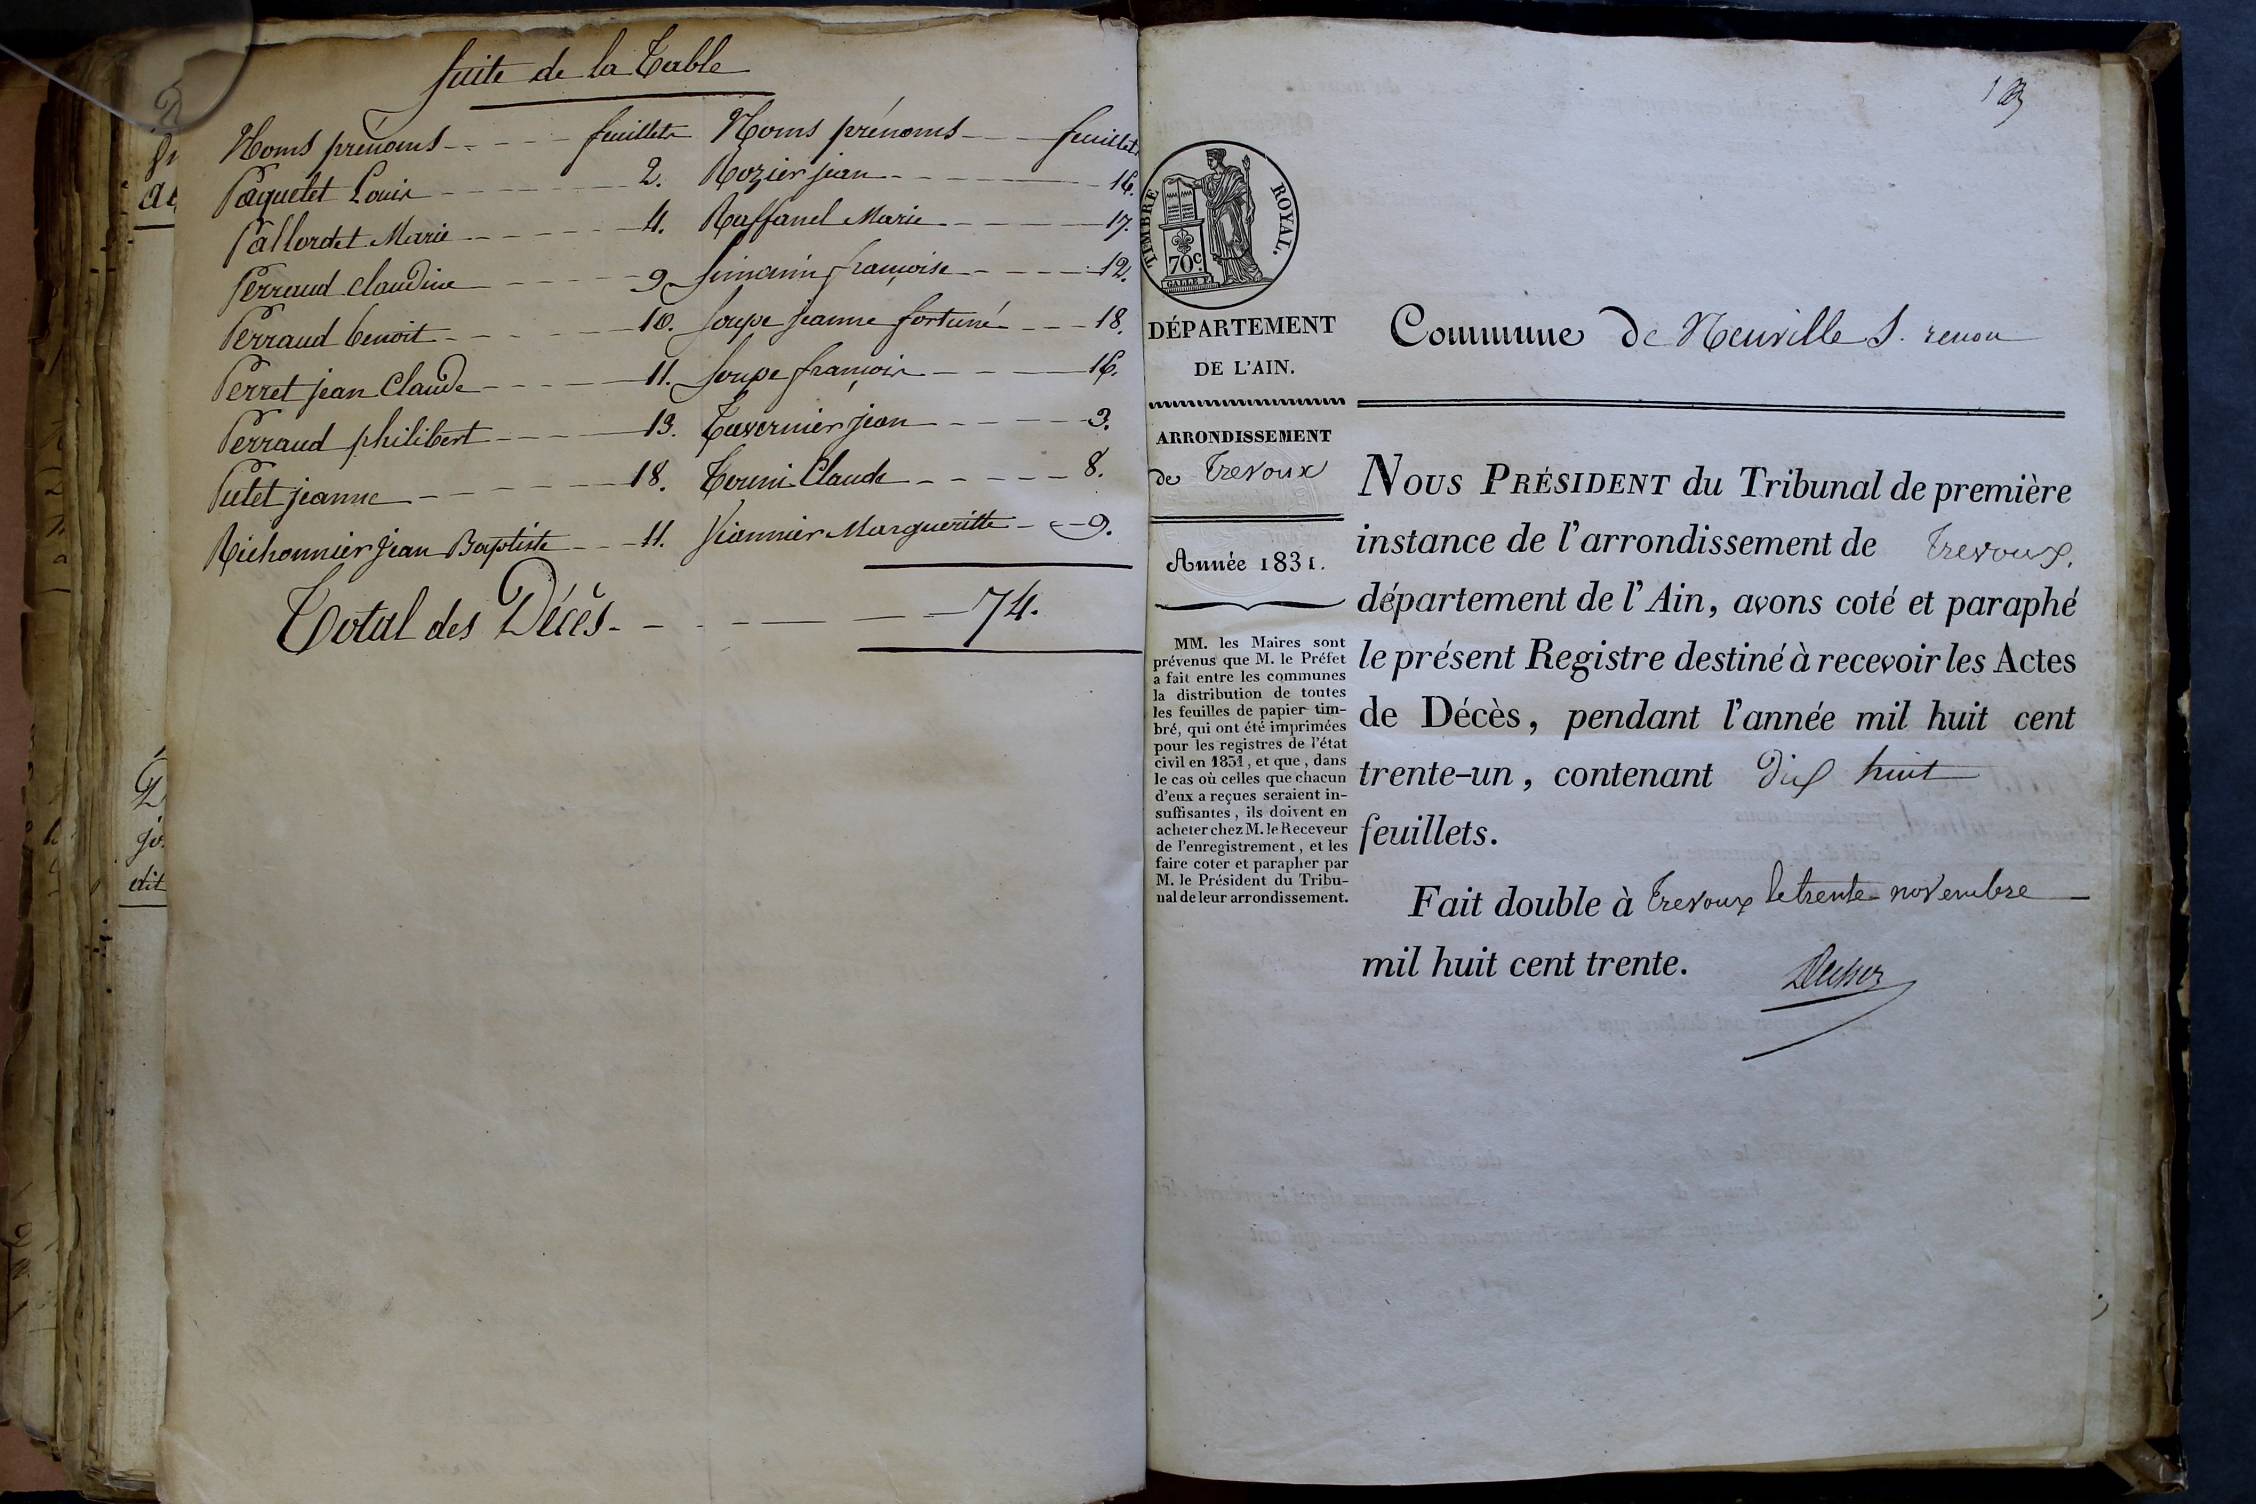 Suite de la Table
Noms prénoms feuillets
Paquelet Louis 2.
Pallordet Marie 4.
Perraud claudine 9
Perraud benoit 10.
Perret jean Claude 11.
Perraud philibert 13.
Putet jeanne 18.
Richonnier jean Baptiste 11.
Noms prénoms feuillets
Rozier jean 16.
Raffanel Marie 17.
françoise 12.
Soupe jeanne fortuné 18.
Soupe françois 16.
Tavernier jean 3.
Claude 8.
Vionnier Margueritte 9.
Total des Décès 74.
1
TIMBRE ROYAL.
70c.
DÉPARTEMENT
DE L'AIN.
ARRONDISSEMENT
de Trevoux
Année 1831.
MM. les Maires sont
prévenus que M. le Préfet
a fait entre les communes
la distribution de toutes
les feuilles de papier tim-
bré, qui ont été imprimées
pour les registres de l'état
civil en 1831, et que, dans
le cas où celles que chacun
d'eux a reçues seraient in-
suffisantes, ils doivent en
acheter chez M. le Receveur
de l'enregistrement, et les
faire coter et parapher par
M. le Président du Tribu-
nal de leur arrondissement.
Commune de Neuville S. renon
NOUS PRÉSIDENT du Tribunal de première
instance de l'arrondissement de Trevoux,
département de l'Ain, avons coté et paraphé
le présent Registre destiné à recevoir les Actes
de Décès, pendant l'année mil huit cent
trente-un, contenant dix huit
feuillets.
Fait double à Trevoux le trente novembre
mil huit cent trente.